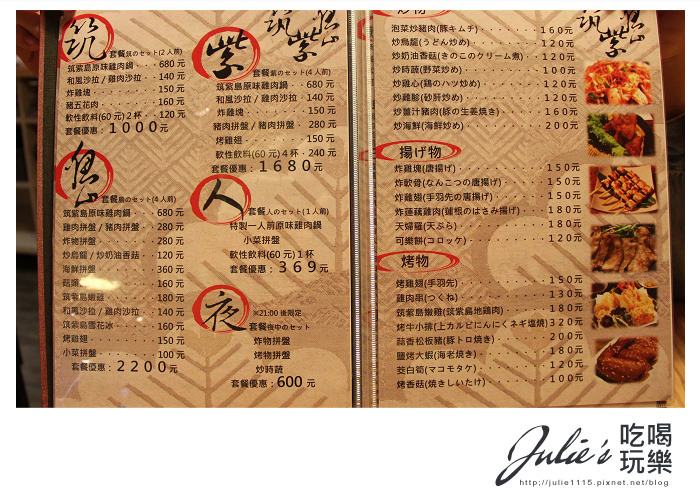 筑
套餐筑のセット(2人前)
筑紫島原味雞肉鍋・・680元
和風沙拉/雞肉沙拉・・140元
炸雞塊・・・150元
豬五花肉・・・160元
軟性飲料(60元)2杯・・120元
套餐優惠：1000元
島
套餐島のセット(4人前)
筑紫島原味雞肉鍋・・・680元
雞肉拼盤/豬肉拼盤・・280元
炸物拼盤・・・280元
炒烏龍/炒奶油香菇・・120元
海鮮拼盤・・・360元
160元
筑紫島嫩雞・・・180元
和風沙拉/雞肉沙拉・・140元
筑紫島雪花冰・・・160元
烤雞翅・・・150元
小菜拼盤・・・100元
套餐優惠：2200元
紫
筑紫島
套餐紫のセット(4人前)
筑紫島原味雞肉鍋・・・680元
和風沙拉/雞肉沙拉・・140元
炸雞塊・・・150元
豬肉拼盤/豬肉拼盤・・280元
烤雞翅・・・150元
軟性飲料(60元)4杯・240元
套餐優惠：1680元
人
套餐人のセット(1人前)
特製一人前原味雞肉鍋
小菜拼盤
軟性飲料(60元)1杯
套餐優惠：369元
夜
※21:00後限定
套餐夜中のセット
炸物拼盤
烤物拼盤
炒時蔬
套餐優惠：600元
炒物
筑紫島
泡菜炒豬肉(豚キムチ)・・・160元
炒烏龍(うどん炒め)・・・120元
炒奶油香菇(きのこのクリーム煮)・・120元
炒時蔬(野菜炒め)・・・100元
炒雞心(鶏のハツ炒め)・・・120元
炒雞胗(砂肝炒め)・・・120元
炒薑汁豬肉(豚の生姜焼き)・・・160元
炒海鮮(海鮮炒め)・・・200元
揚げ物
炸雞塊(唐揚げ)・・・150元
炸軟骨(なんこつの唐揚げ)・・・150元
炸雞翅(手羽先の唐揚げ)・・・150元
炸蓮藕雞肉(蓮根のはさみ揚げ)・・・180元
天婦羅(天ぷら)・・・180元
可樂餅(コロッケ)・・・120元
烤物
烤雞翅(手羽先)・・・150元
雞肉串(つくね)・・・130元
筑紫島嫩雞(筑紫島地鶏肉)・・・180元
烤牛小排(上カルビにんにくネギ塩焼)・320元
蒜香松板豬(豚トロ焼き)・・・200元
鹽烤大蝦(海老焼き)・・・180元
茭白筍(マコモタケ)・・・120元
烤香菇(焼きしいたけ)・・・100元
Julie's 吃喝玩樂
http://julie1115.pixnet.net/blog